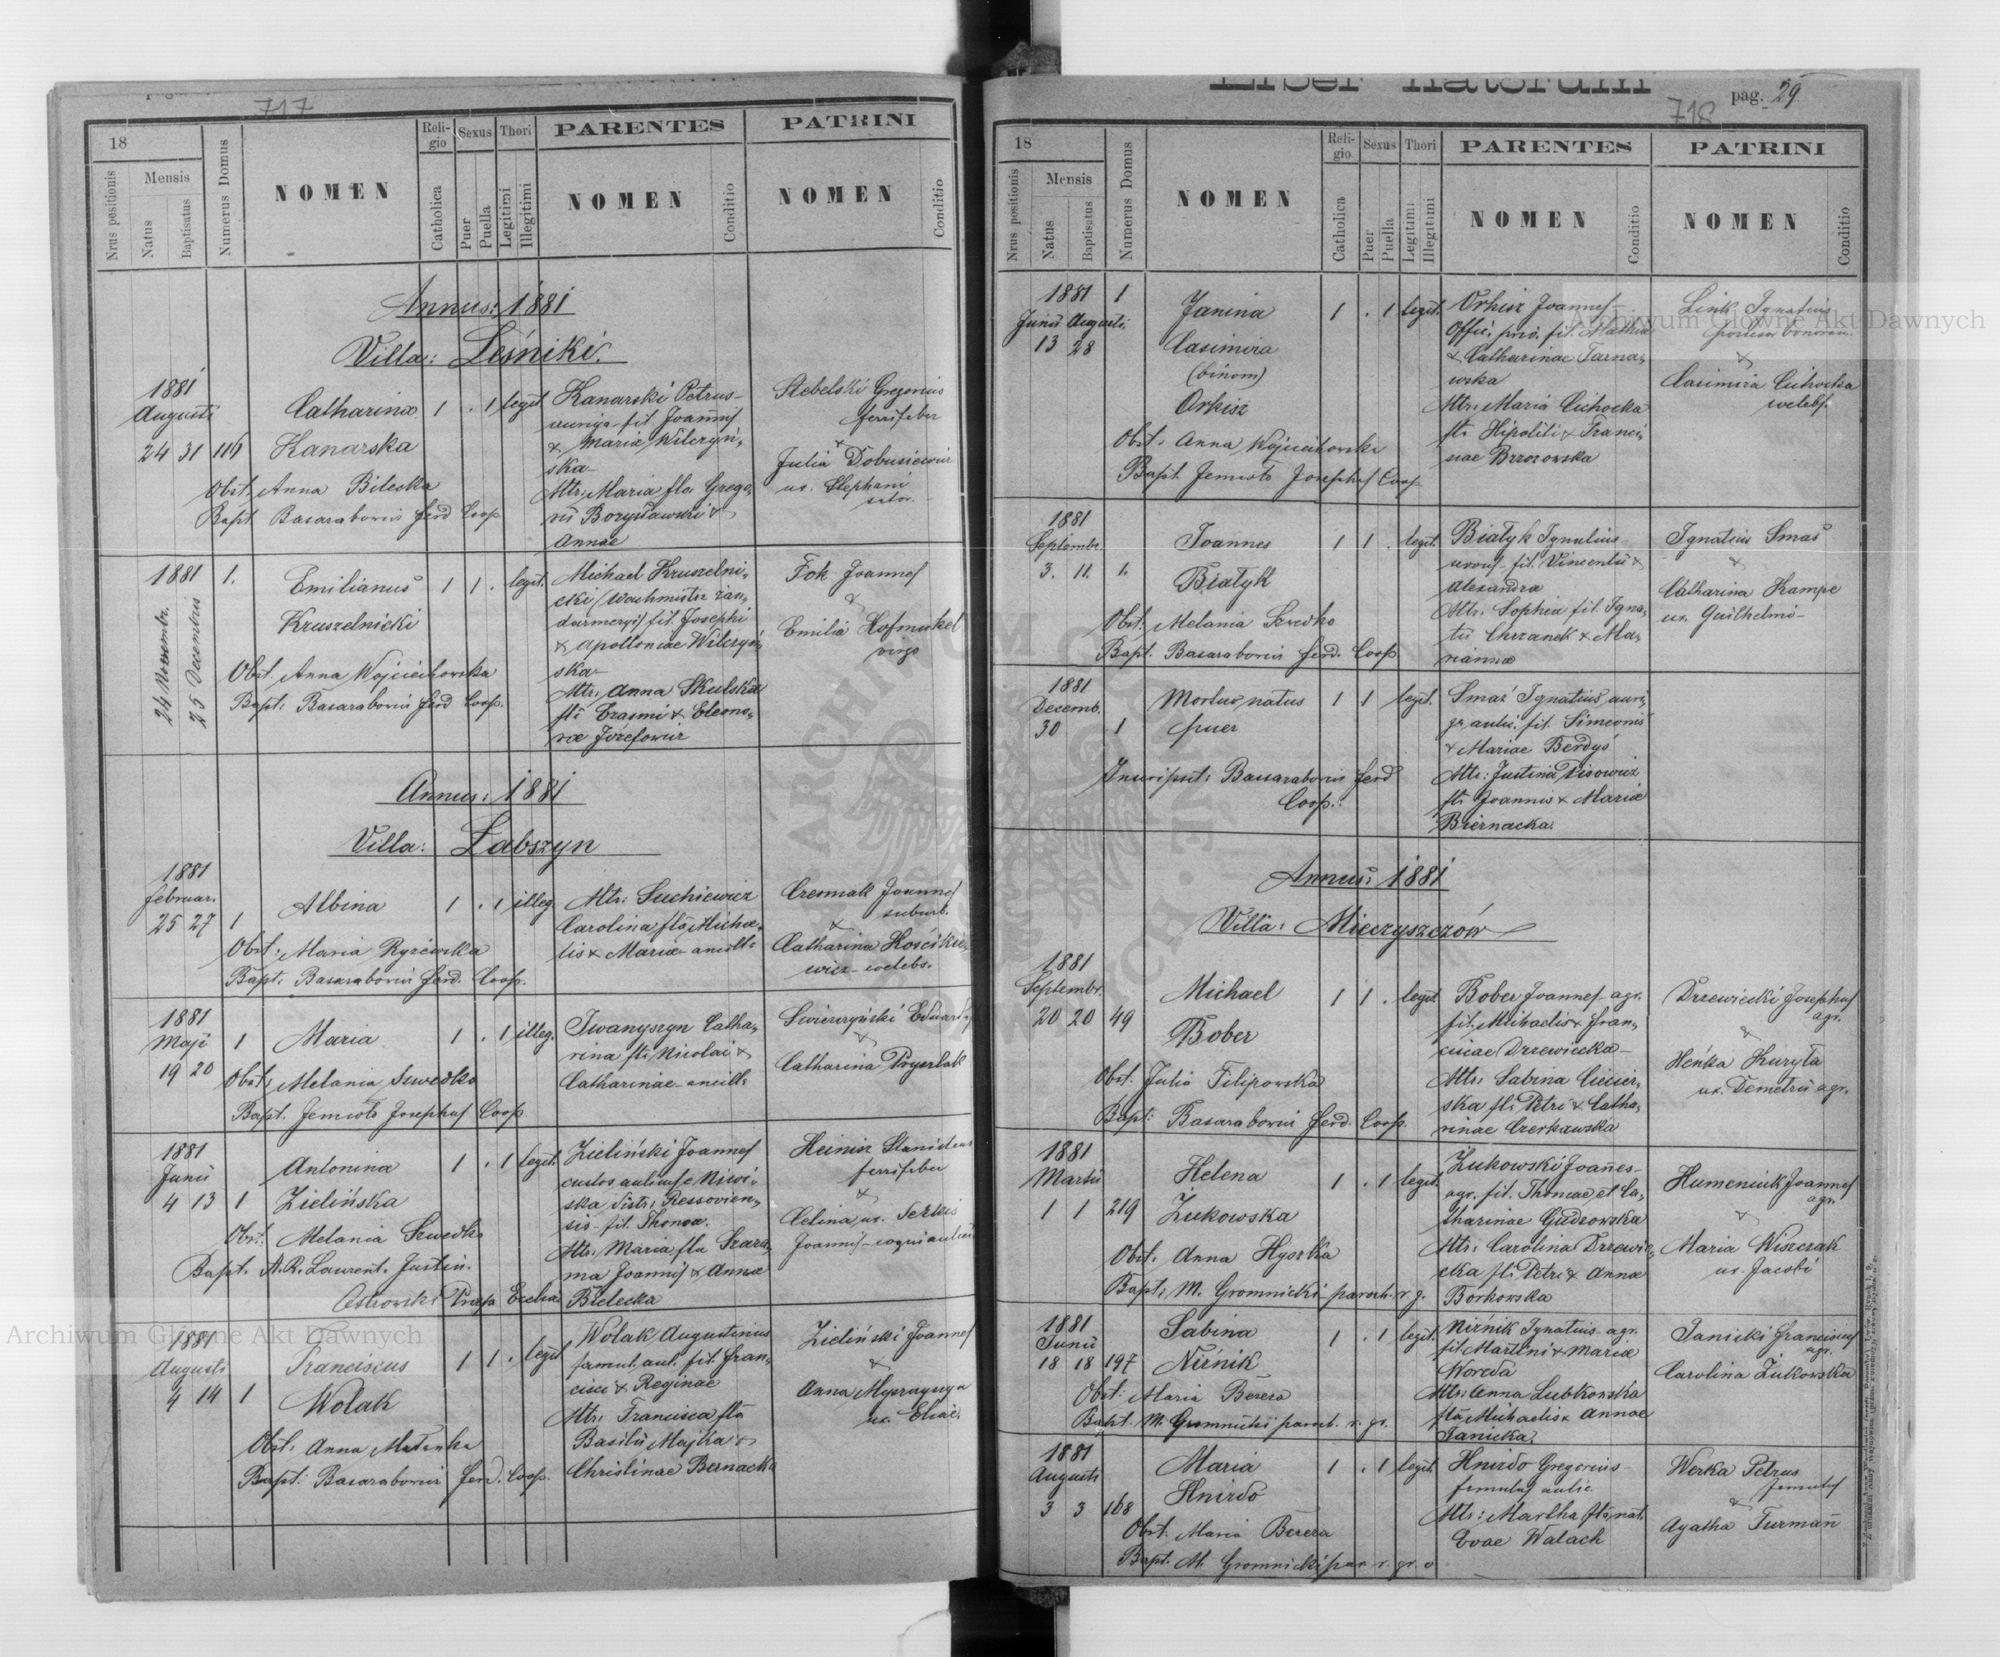 717
18
Mensis
Nrus positionis
Natus
Baptisatus
Numerus Domus
NOMEN
Religio
Catholica
Sexus
Puer
Puella
Thori
Legitimi
Illegitimi
PARENTES
NOMEN
Conditio
PATRINI
NOMEN
Conditio
Annus: 1881
Villa: Leśniki.
1881
Augusti
24 31 116
Catharina
Kanarska
Obst. Anna Bilecka
Bapt. Basarabowicz Ferd Coop
1 . 1 legit
Kanarski Petrus
fil Joannis
& Maria Wilczyń-
ska
Mtr: Maria fla Grego-
rii Borysławski &
Annae
Stebelski Gregorius
ferrifaber
&
Julia Dobusiewicz
ux. Stephani
sutor.
1881 1.
24 Novembr.
25 Decembris
Emilianus
Kruszelnicki
Obst. Anna Wojciechowska
Bapt: Basarabowicz Ferd Coop.
1 1 . legit.
Michael Kruszelni-
cki (Wachmistrz żan-
darmeryi) fil. Josephi
& Apolloniae Wilczyń
ska
Mtr: Anna Skulska
fla Erasmi & Eleono-
rae Józefowicz
Fok Joannes
&
Emilia Hofmokel
virgo
Annus: 1881
Villa: Łabszyn
1881
februar.
25 27 1
Albina
Obst: Maria Ryżewska
Bapt: Basarabowicz Ferd. Coop.
1 . 1 illeg.
Mtr: Suchiewicz
Carolina fla Micha-
lis & Maria ancilla
Czesniak Joannes
suburb.
&
Catharina Kościkie-
wicz - coelebs.
1881
Maji 1
19 20
Maria
Obst: Melania Szwedko
Bapt. Jemioło Josephus Coop
1 . 1 illeg.
Iwanyszyn Catha-
rina fla Nicolai &
Catharinae - ancilla
Swierczyński Eduardus
&
Catharina Pryszlak
1881
Junii
4 13 1
Antonina
Zielińska
Obst: Melania Szwedko
Bapt. A.R. Laurent. Justin.
Ostrowski Praep Eccles
1 . 1 legit.
Zieliński Joannes
custos aulicus e Niwi-
ska distr: Ressovien-
sis - fil. Thoma.
Mtr: Maria fla Szara-
ma Joannis & Anna
Bielecka
Heinisz Stanislaus
ferrifaber
&
Celina ux.
Joannis - coqui aulici
1881
Augusti
4 14 1
Franciscus
Wolak
Obst: Anna
Bapt: Basarabowicz Ferd. Coop.
1 1 . legit
Wolak Augustinus
famul. aul. fil. Fran-
cisci & Reginae
Mtr: Francisca fla
Basilii Majka &
Christinae Bernacka
Zieliński Joannes
&
Anna
ux. Eliae.
Liber natorum
pag. 29
718
18
Mensis
Nrus positionis
Natus
Baptisatus
Numerus Domus
NOMEN
Religio
Catholica
Sexus
Puer
Puella
Thori
Legitimi
Illegitimi
PARENTES
NOMEN
Conditio
PATRINI
NOMEN
Conditio
1881 1
Junii Augusti
13 28
Janina
Casimira
(binom)
Orkisz
Obst: Anna Wojciechowska
Bapt. Jemioło Josephus Coop
1 . 1 legit.
Orkisz Joannes
Offic. priv. fil. Mathiae
& Catharinae Tarna-
wska
Mtr: Maria Cichocka
fla Hipoliti & Franci-
scae Brzozowska
Link Ignatius
possessor bonorum
&
Casimira Cichocka
coelebs.
1881
Septembr.
3. 11. 1.
Joannes
Białyk
Obst. Melania Szwedko
Bapt. Basarabowicz Ferd. Coop
1 1 . legit.
Białyk Ignatius
fil. Vincentii &
Alexandra
Mtr. Sophia fil. Igna-
tii Chrzanek & Ma-
rianna
Ignatius Smaś
&
Catharina Kampe
ux. Guilhelmi
1881
Decemb.
30 1
Mortuo natus
puer
Inscripsit: Basarabowicz Ferd
Coop.
1 1 legit.
Smaś Ignatius auri-
ga aulic. fil. Simeonis
& Mariae Berdyś
Mtr: Justina Lisowicz
fla Joannis & Maria
Biernacka.
Annus: 1881
Villa: Mieczyszczów
1881
Septembr.
20 20 49
Michael
Bober
Obst: Julia Filipowska
Bapt: Basarabowicz Ferd. Coop.
1 1 . legit
Bober Joannes agr.
fil. Michaelis & Fran-
ciscae Drzewiecka
Mtr: Sabina Ciesiel-
ska fla Petri & Catha-
rinae Czerkawska
Drzewiecki Josephus
agr.
&
Henka Kuryła
ux. Demetrii agr.
1881
Martii
1 1 219
Helena
Żukowska
Obst. Anna Hyorka
Bapt: M. Gromnicki paroch. r. g.
1 . 1 legit
Żukowski Joannes
agr. fil. Thomae et Ca-
tharinae Gudzowska
Mtr: Carolina Drzewie-
cka fla Petri & Anna
Borkowska
Humeniuk Joannes
agr.
&
Maria Wiszczak
ux. Jacobi
1881
Junii
18 18 197
Sabina
Niżnik
Obst: Maria Bereza
Bapt. M. Gromnicki paroch. r. gr.
1 . 1 legit.
Niżnik Ignatius agr.
fil. Martini & Maria
Woreda
Mtr: Anna Lubkowska
fla Michaelis & Annae
Janicka.
Janicki Franciscus
agr.
Carolina Żukowska
1881
Augusti
3 3 168
Maria
Hnizdo
Obst. Maria Bereza
Bapt. M. Gromnicki par. r. gr.
1 . 1 legit.
Hnizdo Gregorius
famulus aulic.
Mtr: Martha fla nat.
Evae Walach
Werka Petrus
famulus
&
Agatha Furmań
Archiwum Główne Akt Dawnych
Archiwum Główne Akt Dawnych